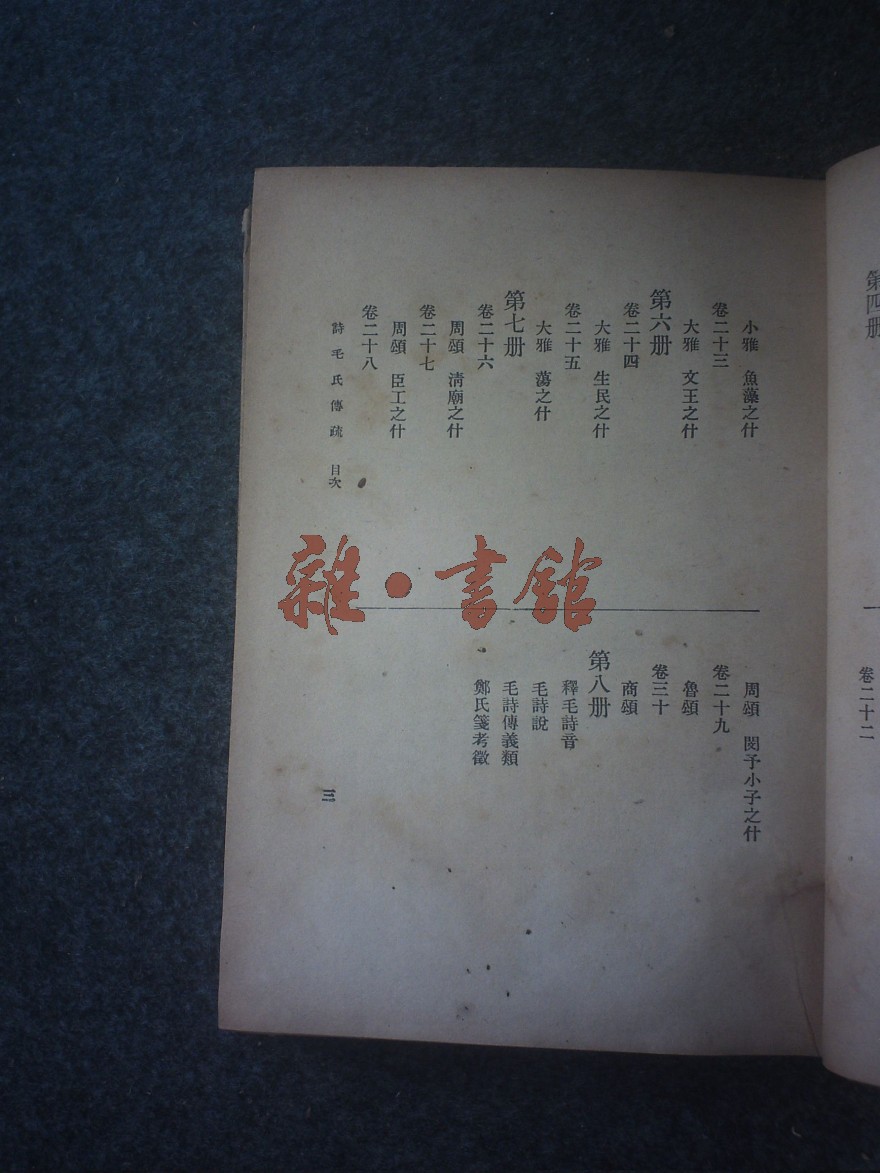 第四册
卷二十二
小雅　魚藻之什
卷二十三
大雅　文王之什
第六册
卷二十四
大雅　生民之什
卷二十五
大雅　蕩之什
第七册
卷二十六
周頌　清廟之什
卷二十七
周頌　臣工之什
卷二十八
周頌　閔予小子之什
卷二十九
魯頌
卷三十
商頌
第八册
釋毛詩音
毛詩說
毛詩傳義類
鄭氏箋考徵
詩毛氏傳疏　目次
三
雜・書館